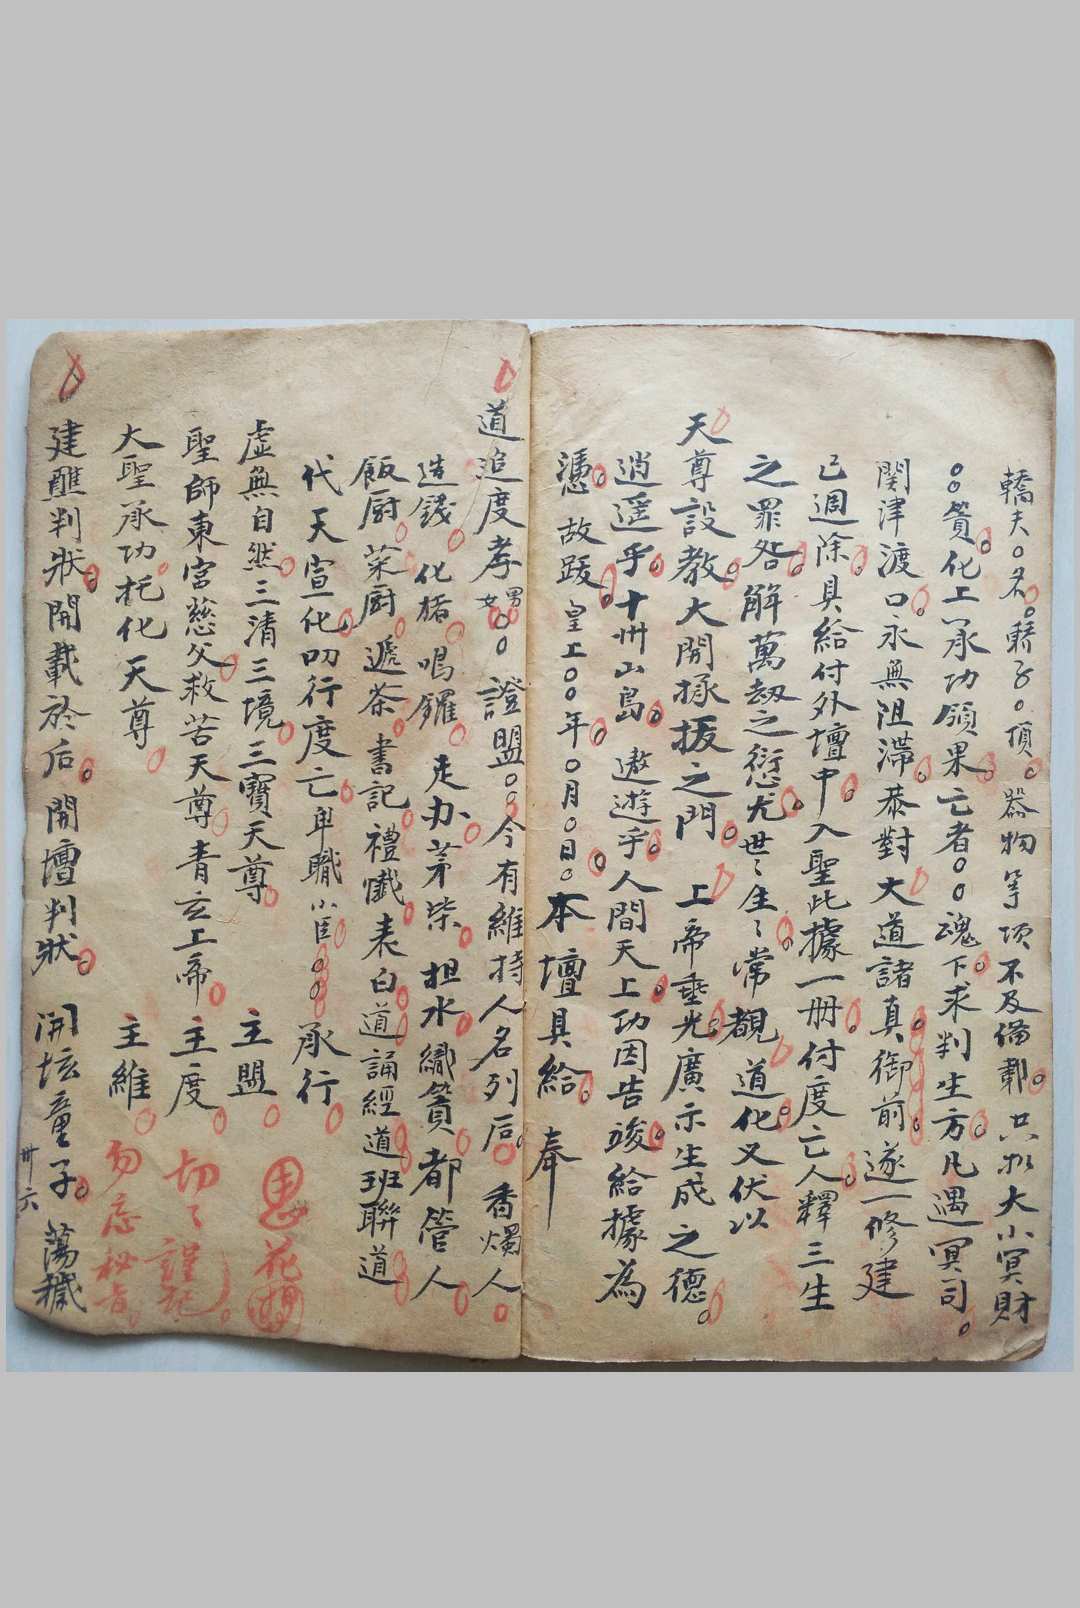 轎夫〇名轎子〇頂器物等項不及俻載共大小冥財
〇〇簣化上承功領果亡者〇〇魂下求判生方凡遇冥司
関津渡口永無阻滯恭對大道諸真御前遂一修建
已週除具給付外壇中入聖此據一册付度亡人釋三生
之罪咎解萬劫之愆尤世〻生〻常覩道化又伏以
天尊設教大開拯拔之門上帝垂光廣示生成之德
逍遥乎十州山島遨遊乎人間天上功因告竣給據為
憑故跋皇上〇〇年〇月〇日本壇具給奉
道追度孝男女〇〇證盟〇〇今有維持人名列后香燭人
造錢化楮鳴鑼走办茅柴担水織簣都管人
飯厨菜厨遞茶書記禮懺表白道誦經道班聯道
代天宣化叨行度亡卑職小臣〇〇承行
虛無自然三清三境三寶天尊主盟
聖師東宮慈父救苦天尊青玄上帝主度
大聖承功托化天尊主維
思花
切〻謹記
勿忘秘旨
建醮判狀開載於后開壇判狀開坛童子蕩穢
卅六